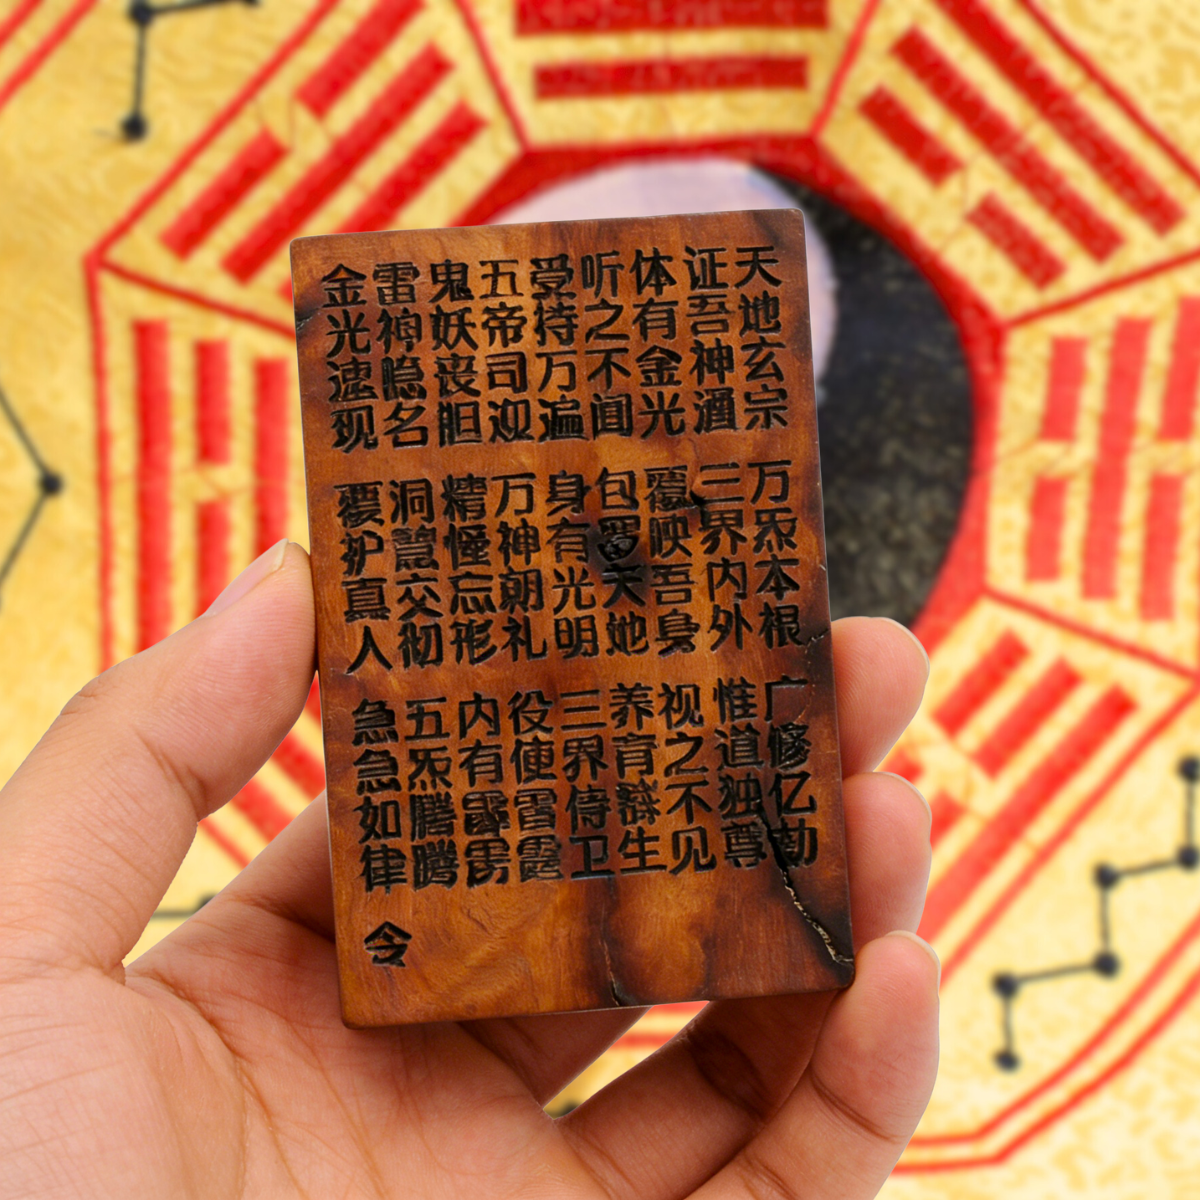 天地玄宗 万炁本根 广修亿
证吾神通 三界内外 惟道独尊
体有金光 覆映吾身 视之不见
听之不闻 包天地 养育生
受持万遍 身有光明 三界侍卫
五帝司迎 万神朝礼 役使
鬼妖丧胆 精忘形 内有
雷神隐名 洞交彻 五炁腾腾
金光速现 覆护真人 急急如律令